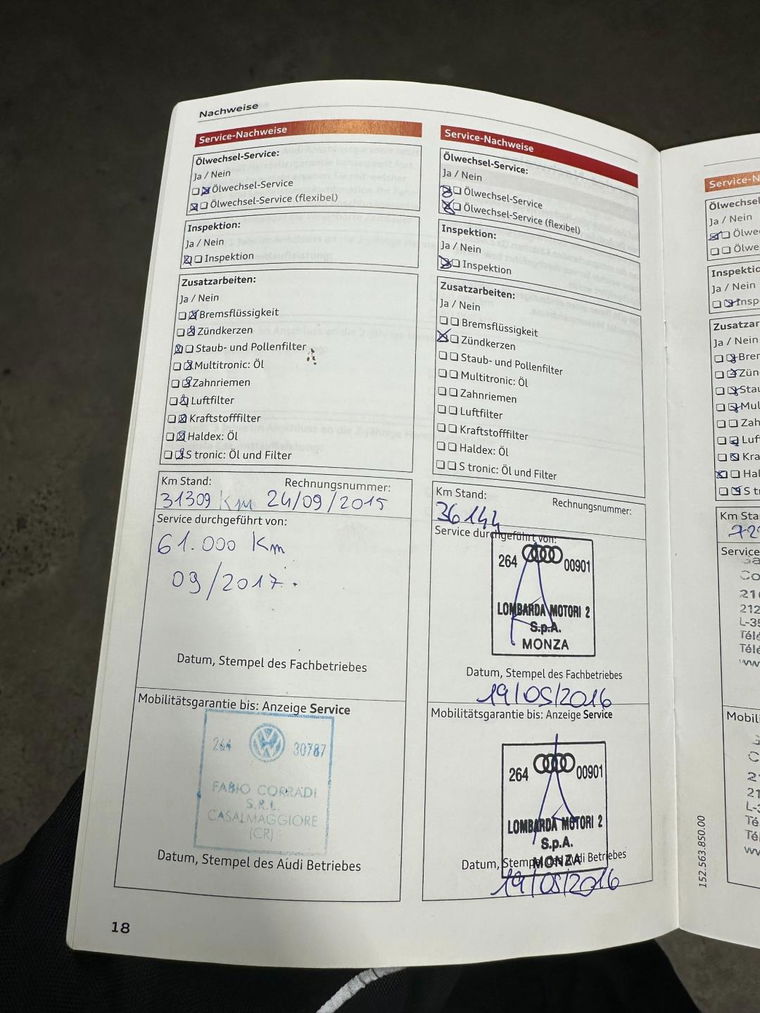 Nachweise
Service-Nachweise
Ölwechsel-Service:
Ja / Nein
Ölwechsel-Service
Ölwechsel-Service (flexibel)
Inspektion:
Ja / Nein
Inspektion
Zusatzarbeiten:
Ja / Nein
Bremsflüssigkeit
Zündkerzen
Staub- und Pollenfilter
Multitronic: Öl
Zahnriemen
Luftfilter
Kraftstofffilter
Haldex: Öl
S tronic: Öl und Filter
Km Stand: Rechnungsnummer:
31309 Km 24/09/2015
Service durchgeführt von:
61.000 Km
09/2017.
Datum, Stempel des Fachbetriebes
Mobilitätsgarantie bis: Anzeige Service
264 30787
FABIO CORRADI
S.R.L.
CASALMAGGIORE
(CR)
Datum, Stempel des Audi Betriebes
18
Service-Nachweise
Ölwechsel-Service:
Ja / Nein
Ölwechsel-Service
Ölwechsel-Service (flexibel)
Inspektion:
Ja / Nein
Inspektion
Zusatzarbeiten:
Ja / Nein
Bremsflüssigkeit
Zündkerzen
Staub- und Pollenfilter
Multitronic: Öl
Zahnriemen
Luftfilter
Kraftstofffilter
Haldex: Öl
S tronic: Öl und Filter
Km Stand: Rechnungsnummer:
36144
Service durchgeführt von:
264 00901
LOMBARDA MOTORI 2
S.p.A.
MONZA
Datum, Stempel des Fachbetriebes
19/05/2016
Mobilitätsgarantie bis: Anzeige Service
264 00901
LOMBARDA MOTORI 2
S.p.A.
MONZA
Datum, Stempel des Audi Betriebes
19/05/2016
152.563.850.00
Service-N
Ölwechsel
Ja / Nein
Ölwechs
Ölwe
Inspektio
Ja / Nein
Insp
Zusatzar
Ja / Nein
Brem
Zün
Stau
Mul
Zah
Luf
Kra
Hal
S t
Km Sta
Service
Co
212
L-35
Télé
Mobil